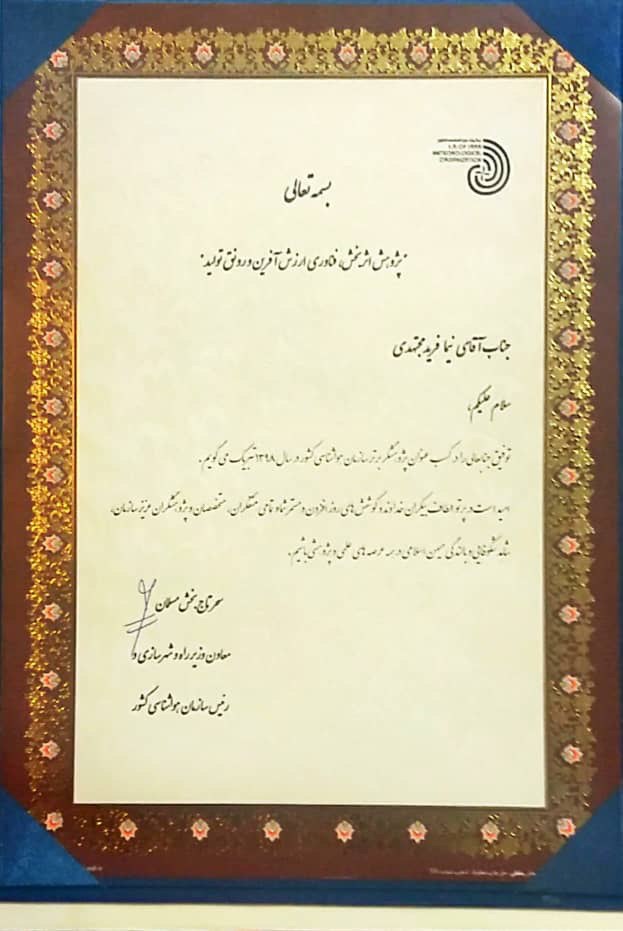 I.R. OF IRAN
METEOROLOGICAL
ORGANIZATION
بسمه تعالی
"پژوهش اثربخش، فناوری ارزش آفرین و رونق تولید"
جناب آقای نیما فرید مجتهدی
سلام علیکم،
توفیق جنابعالی را در کسب عنوان پژوهشگر برتر سازمان هواشناسی کشور در سال ۱۳۹۸ تبریک می گویم.
امید است در پرتو الطاف بیکران خداوند و کوشش های روز افزون و مستمر شما و تمامی متفکران، متخصصان و پژوهشگران عزیز سازمان،
شاهد شکوفایی و بالندگی میهن اسلامی در همه عرصه های علمی و پژوهشی باشیم.
سحر تاج بخش مسلمان
معاون وزیر راه و شهرسازی و
رئیس سازمان هواشناسی کشور